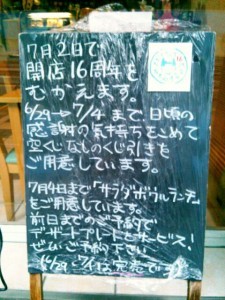 7月2日で
開店16周年を
むかえます。
6/29→7/4まで、日頃の
感謝の気持ちをこめて
空くじなしのくじ引きを
ご用意しています。
7月4日まで「サラダボウルランチ」
をご用意しています。
前日までのご予約で
デザートプレートをサービス!
ぜひご予約下さい
(6/29、7/1は完売です)